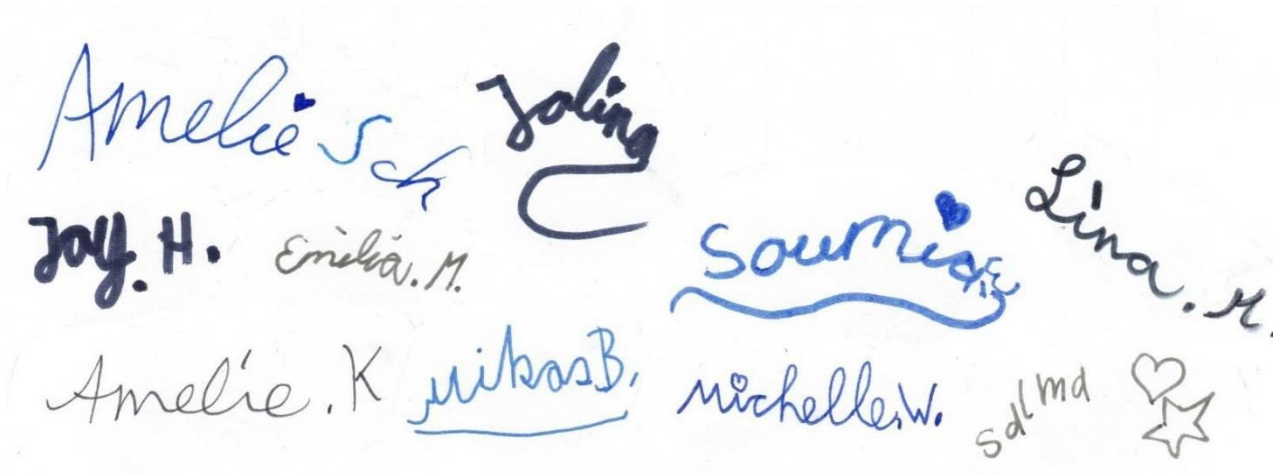 Amelie Sch
Jolina
Joy. H.
Emilia. M.
Soumia.E
Lina. M.
Amelie. K
Mikas B.
Michelle.W.
Salma